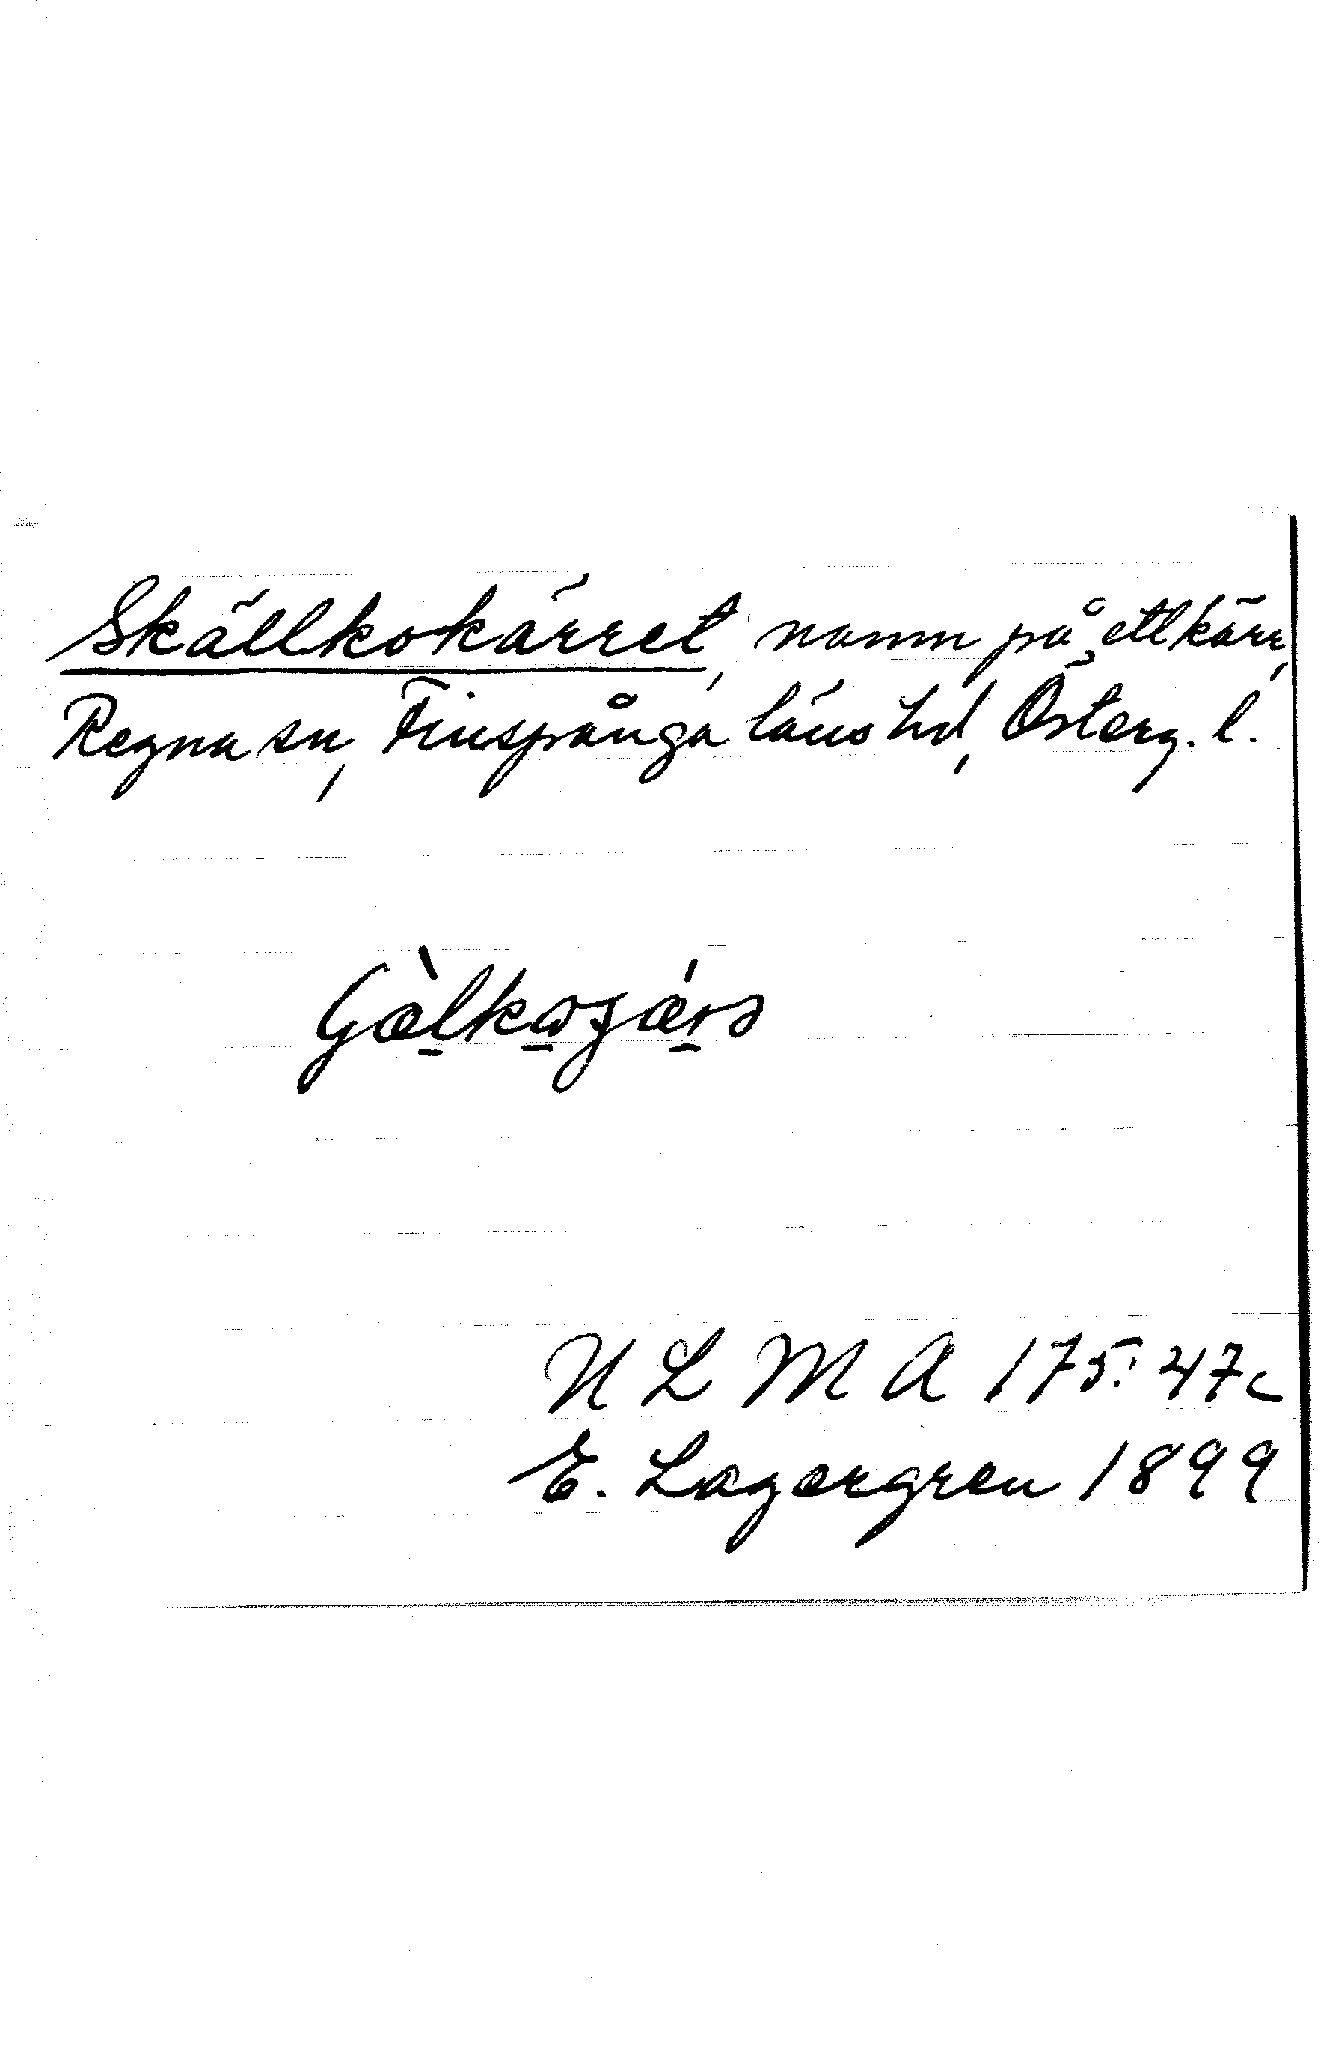 Skällkokärret, namn på ett kärr,
Regna sn, Finspånga läns hd, Österg. l.
U L M A 175:47c
E. Lagergren 1899